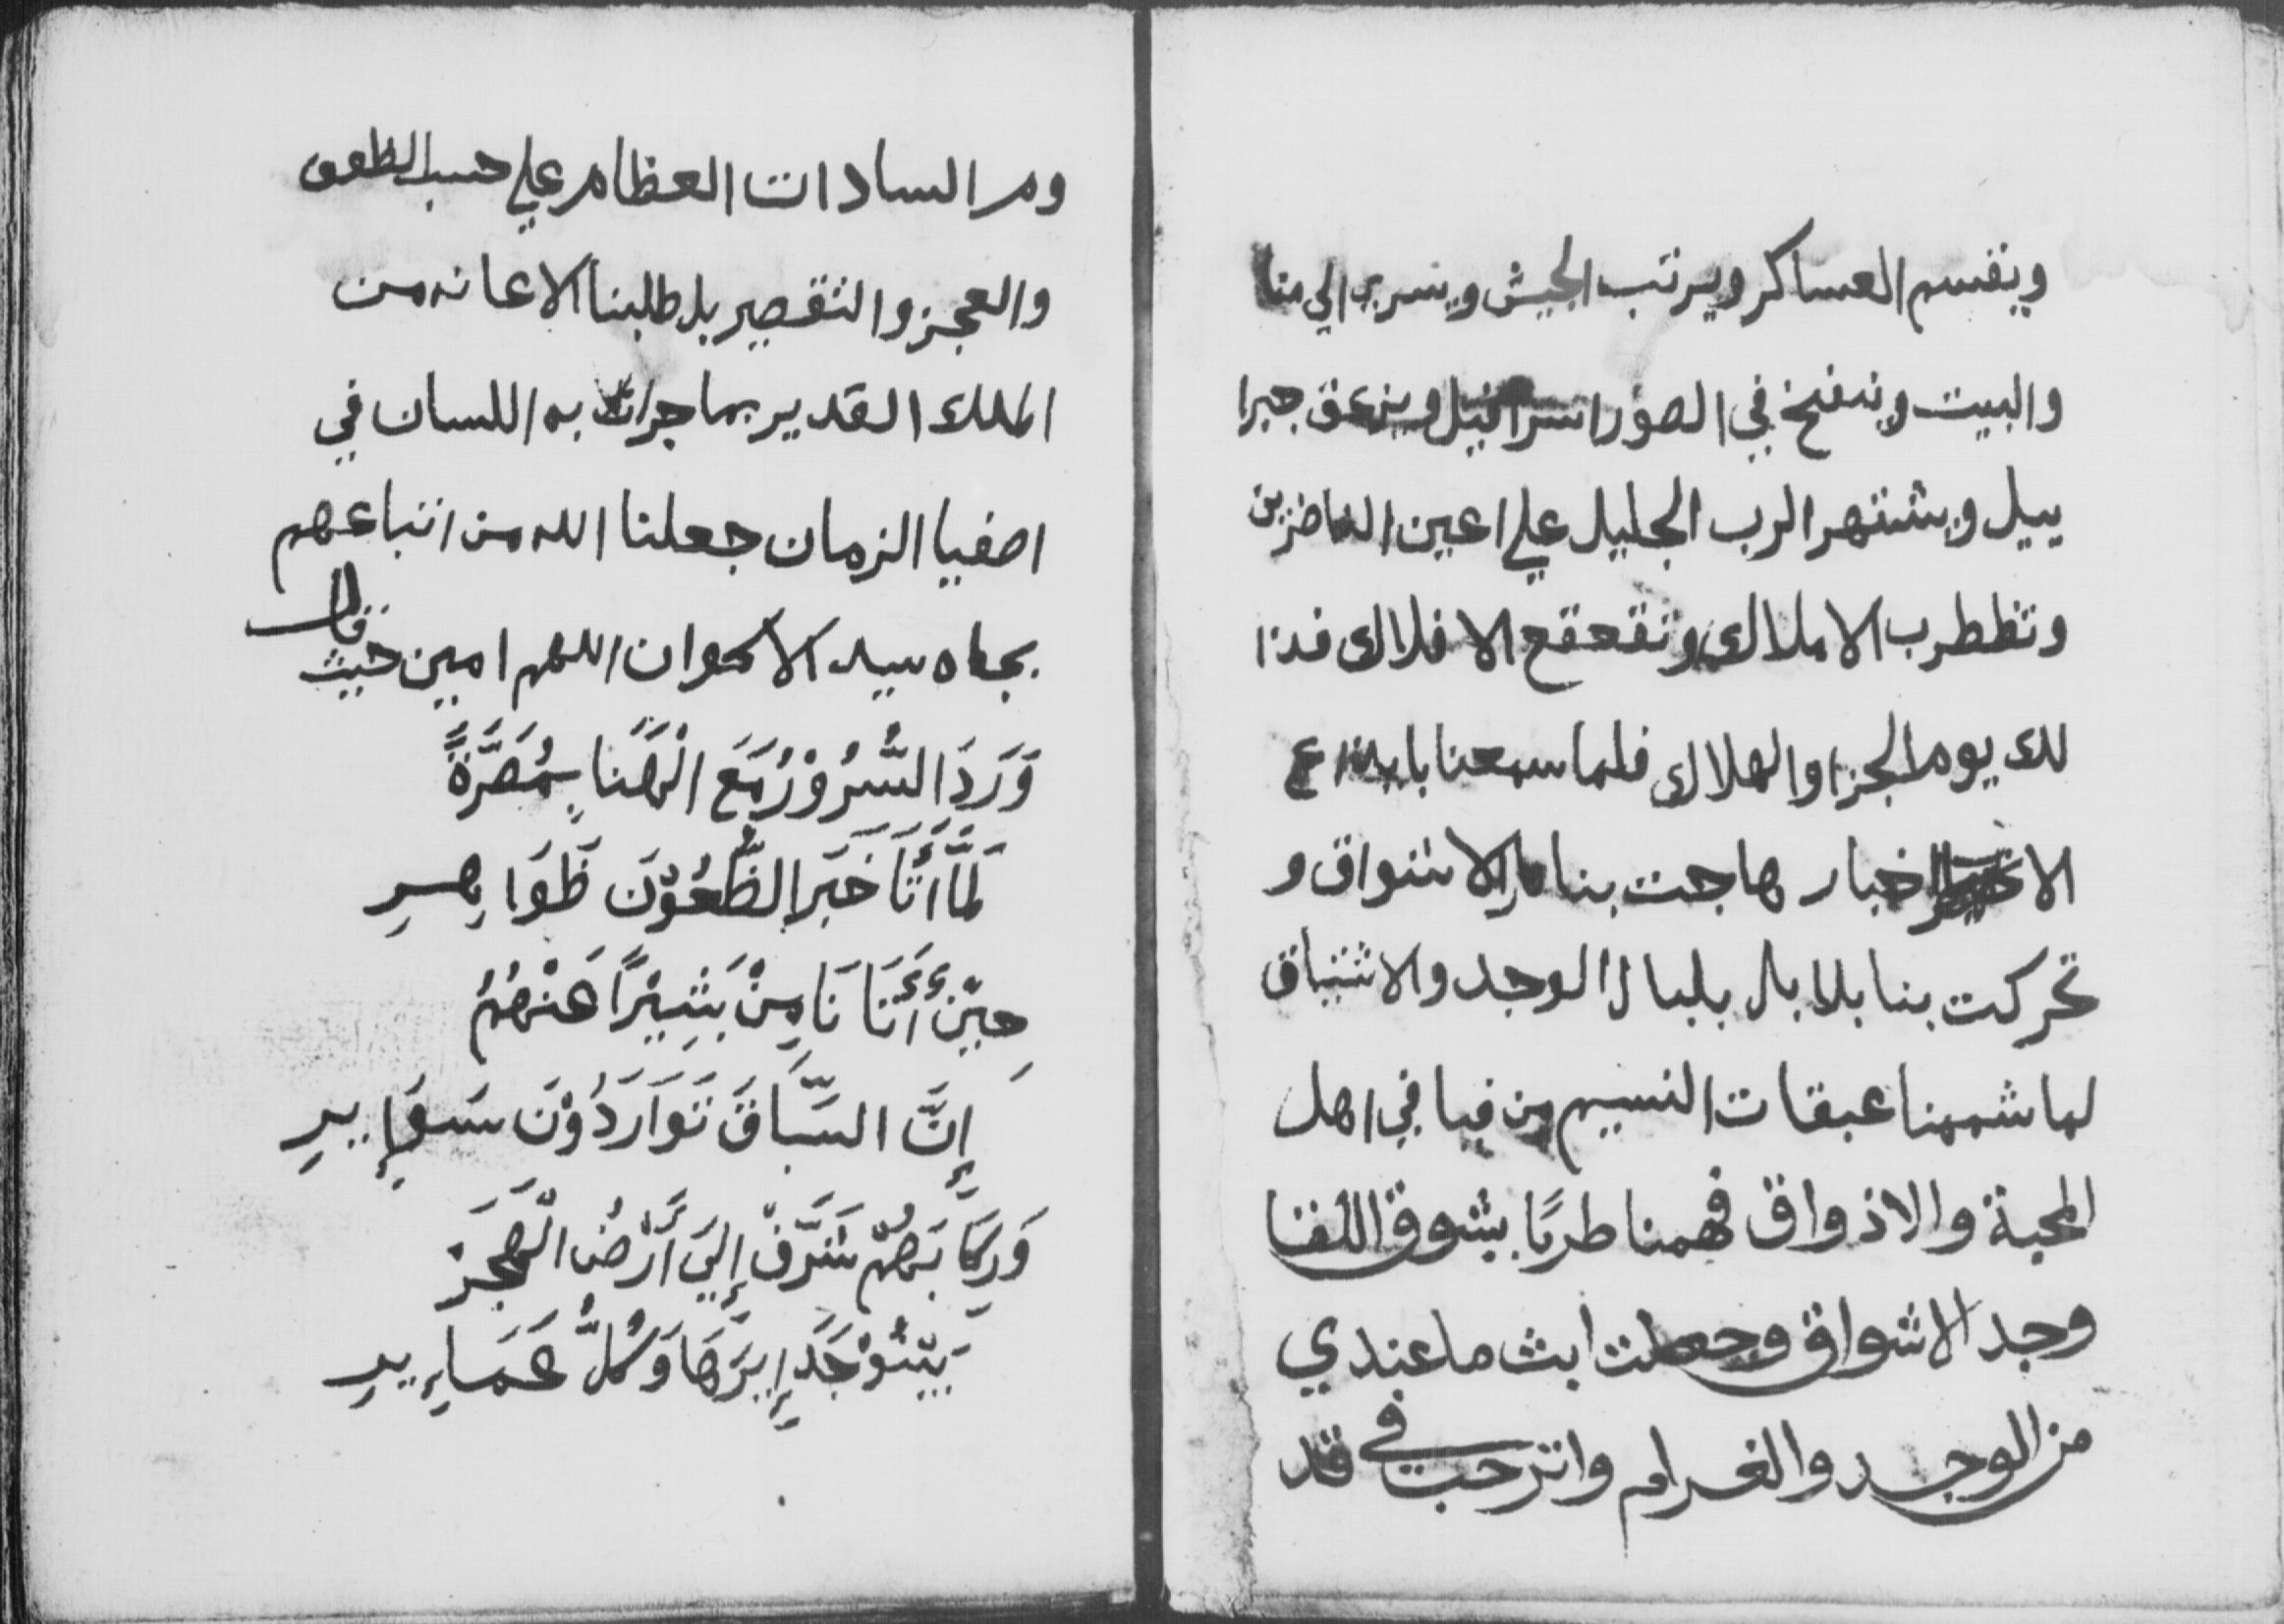 ويقسم العساكر ويرتب الجيش ويسري الي منا
والبيت وينفخ في الصور اسرافيل ويزعق جبرا
ييل ويشتهر الرب الجليل علي اعين الحاضرين
وتظطرب الاملاك وتقعقع الافلاك فذا
لك يوم الجزا والهلاك فلما سمعنا بابداع
الاخبار هاجت بنا الاشواق و
تحركت بنا بلا بال بلبال الوجد والاشتياق
لما شممنا عبقات النسيم من فيافي اهل
المحبة والاذواق فهمنا طربًا بشوق اللقا
وجد الاشواق وجعلت ابث ما عندي
من الوجد والغرام واترحب في قد
وم السادات العظام علي حسب الظعف
والعجز والتقصير بل طلبنا الاعانه من
الملك القدير بما جرات به اللسان في
اصفيا الزمان جعلنا الله من اتباعهم
بجاه سيد الاكوان اللهم امين حيث قال
وَرَدَ السُّرُوْرُ مَعَ الْهَنَا بِمُصَرَّةً
لَمَّا أَتَا خَبَرَ الظُّعُوْنَ ظَوَا هِرِ
حِيْنَ أَتَانَا مِنْ بَشِيْرًا عَنْهُمُ
إِنَّ السِّبَاقَ تَوَارَدُوْنَ سَوَإِيرِ
وَرِكَابَهُمْ شَرَّفْ إِلَيَ أَرْضُ الْهَجَرْ
وَكُلُّ عَمَإِيرِ